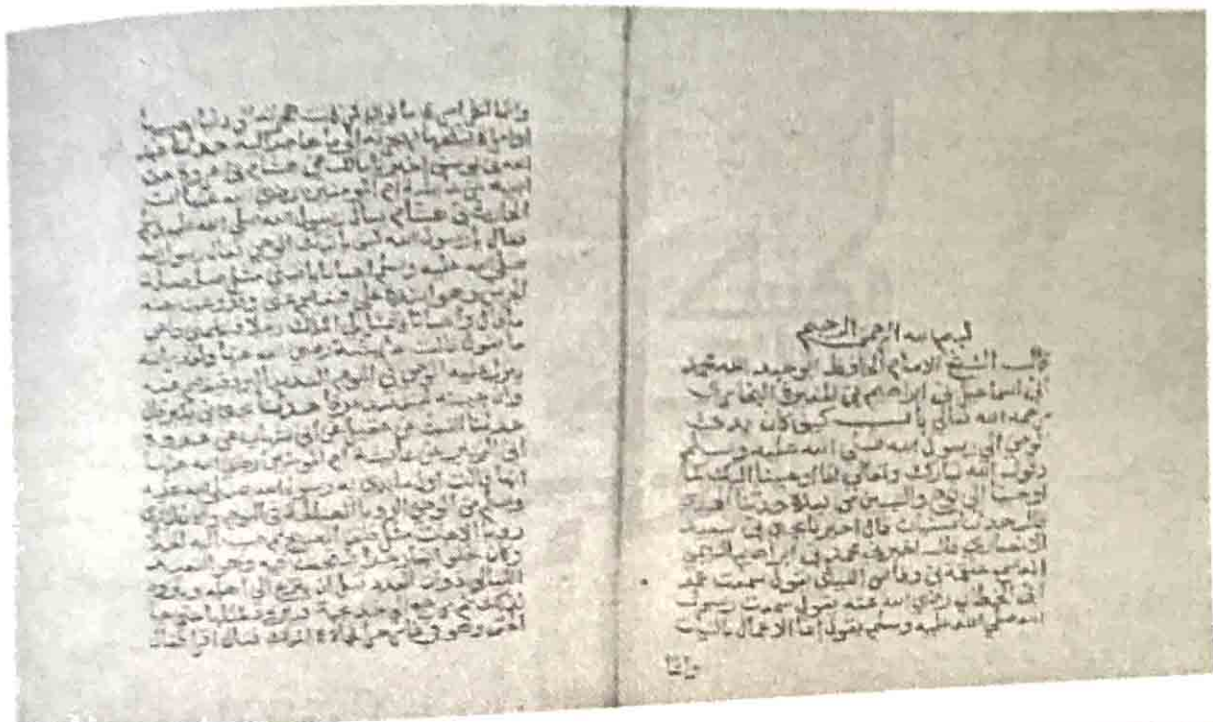 بسم الله الرحمن الرحيم
قال الشيخ الامام الحافظ الوحيد محمد
ابن اسماعيل بن ابراهيم بن المغيرة البخاري
رحمه الله تعالى باب كيف كان بدء
الوحي الى رسول الله صلى الله عليه وسلم
وقول الله تبارك وتعالى انا اوحينا اليك كما
اوحينا الى نوح والنبيين من بعده حدثنا الحميدي
قال حدثنا سفيان قال اخبرنا يحيى بن سعيد
الانصاري قال اخبرني محمد بن ابراهيم التيمي
انه سمع علقمة بن وقاص الليثي يقول سمعت عمر
ابن الخطاب رضي الله عنه يقول سمعت رسول
الله صلى الله عليه وسلم يقول انما الاعمال بالنيات
وانما
وانما لامرئ ما نوى فمن كانت هجرته الى دنيا يصيبها
او امراة ينكحها فهجرته الى ما هاجر اليه حدثنا عبد
الله بن يوسف اخبرنا مالك عن هشام بن عروة عن
ابيه عن عائشة ام المومنين رضي الله عنها ان
الحارث بن هشام سال رسول الله صلى الله عليه وسلم
فقال يا رسول الله كيف ياتيك الوحي فقال رسول الله
صلى الله عليه وسلم احيانا ياتيني مثل صلصلة
الجرس وهو اشده علي فيفصم عني وقد وعيت عنه
ما قال واحيانا يتمثل لي الملك رجلا فيكلمني فاعي
ما يقول قالت عائشة رضي الله عنها ولقد رايته
ينزل عليه الوحي في اليوم الشديد البرد فيفصم عنه
وان جبينه ليتفصد عرقا حدثنا يحيى بن بكير قال
حدثنا الليث عن عقيل عن ابن شهاب عن عروة
ابن الزبير عن عائشة ام المومنين رضي الله عنها
انها قالت اول ما بدئ به رسول الله صلى الله عليه
وسلم من الوحي الرويا الصالحة في النوم فكان لا يرى
رويا الا جاءت مثل فلق الصبح ثم حبب اليه الخلاء
وكان يخلو بغار حراء فيتحنث فيه وهو التعبد
الليالي ذوات العدد قبل ان ينزع الى اهله ويتزود
لذلك ثم يرجع الى خديجة فيتزود لمثلها حتى جاءه
الحق وهو في غار حراء فجاءه الملك فقال اقرا فقال